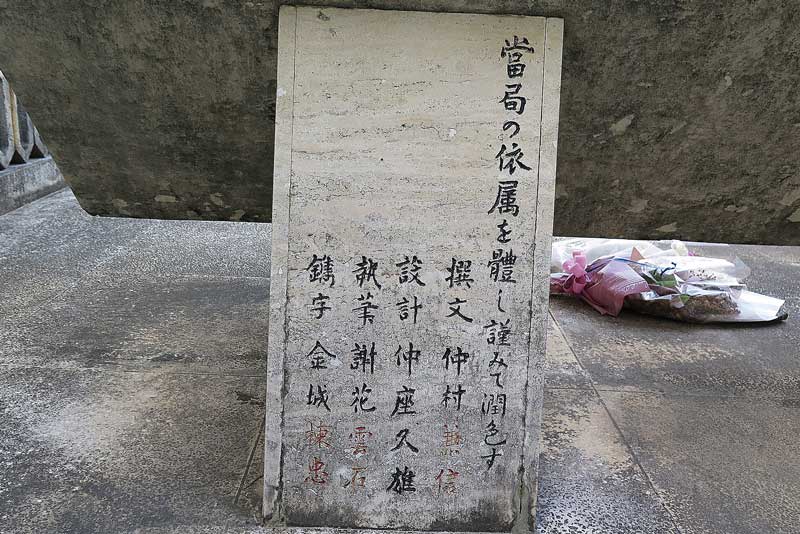 當局の依属を體し謹みて潤色す
撰文 仲村兼信
設計 仲座久雄
執筆 謝花雲石
鐫字 金城棟忠